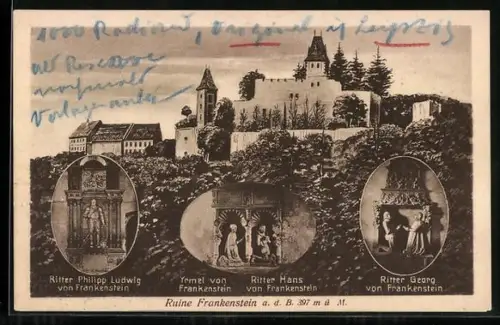 1000 Radiord, Original in Leipzig
als Reserve
nochmals
Vorlage
Ritter Philipp Ludwig
von Frankenstein
Yrmel von
Frankenstein
Ritter Hans
von Frankenstein
Ritter Georg
von Frankenstein
Ruine Frankenstein a. d. B. 397 m ü M.